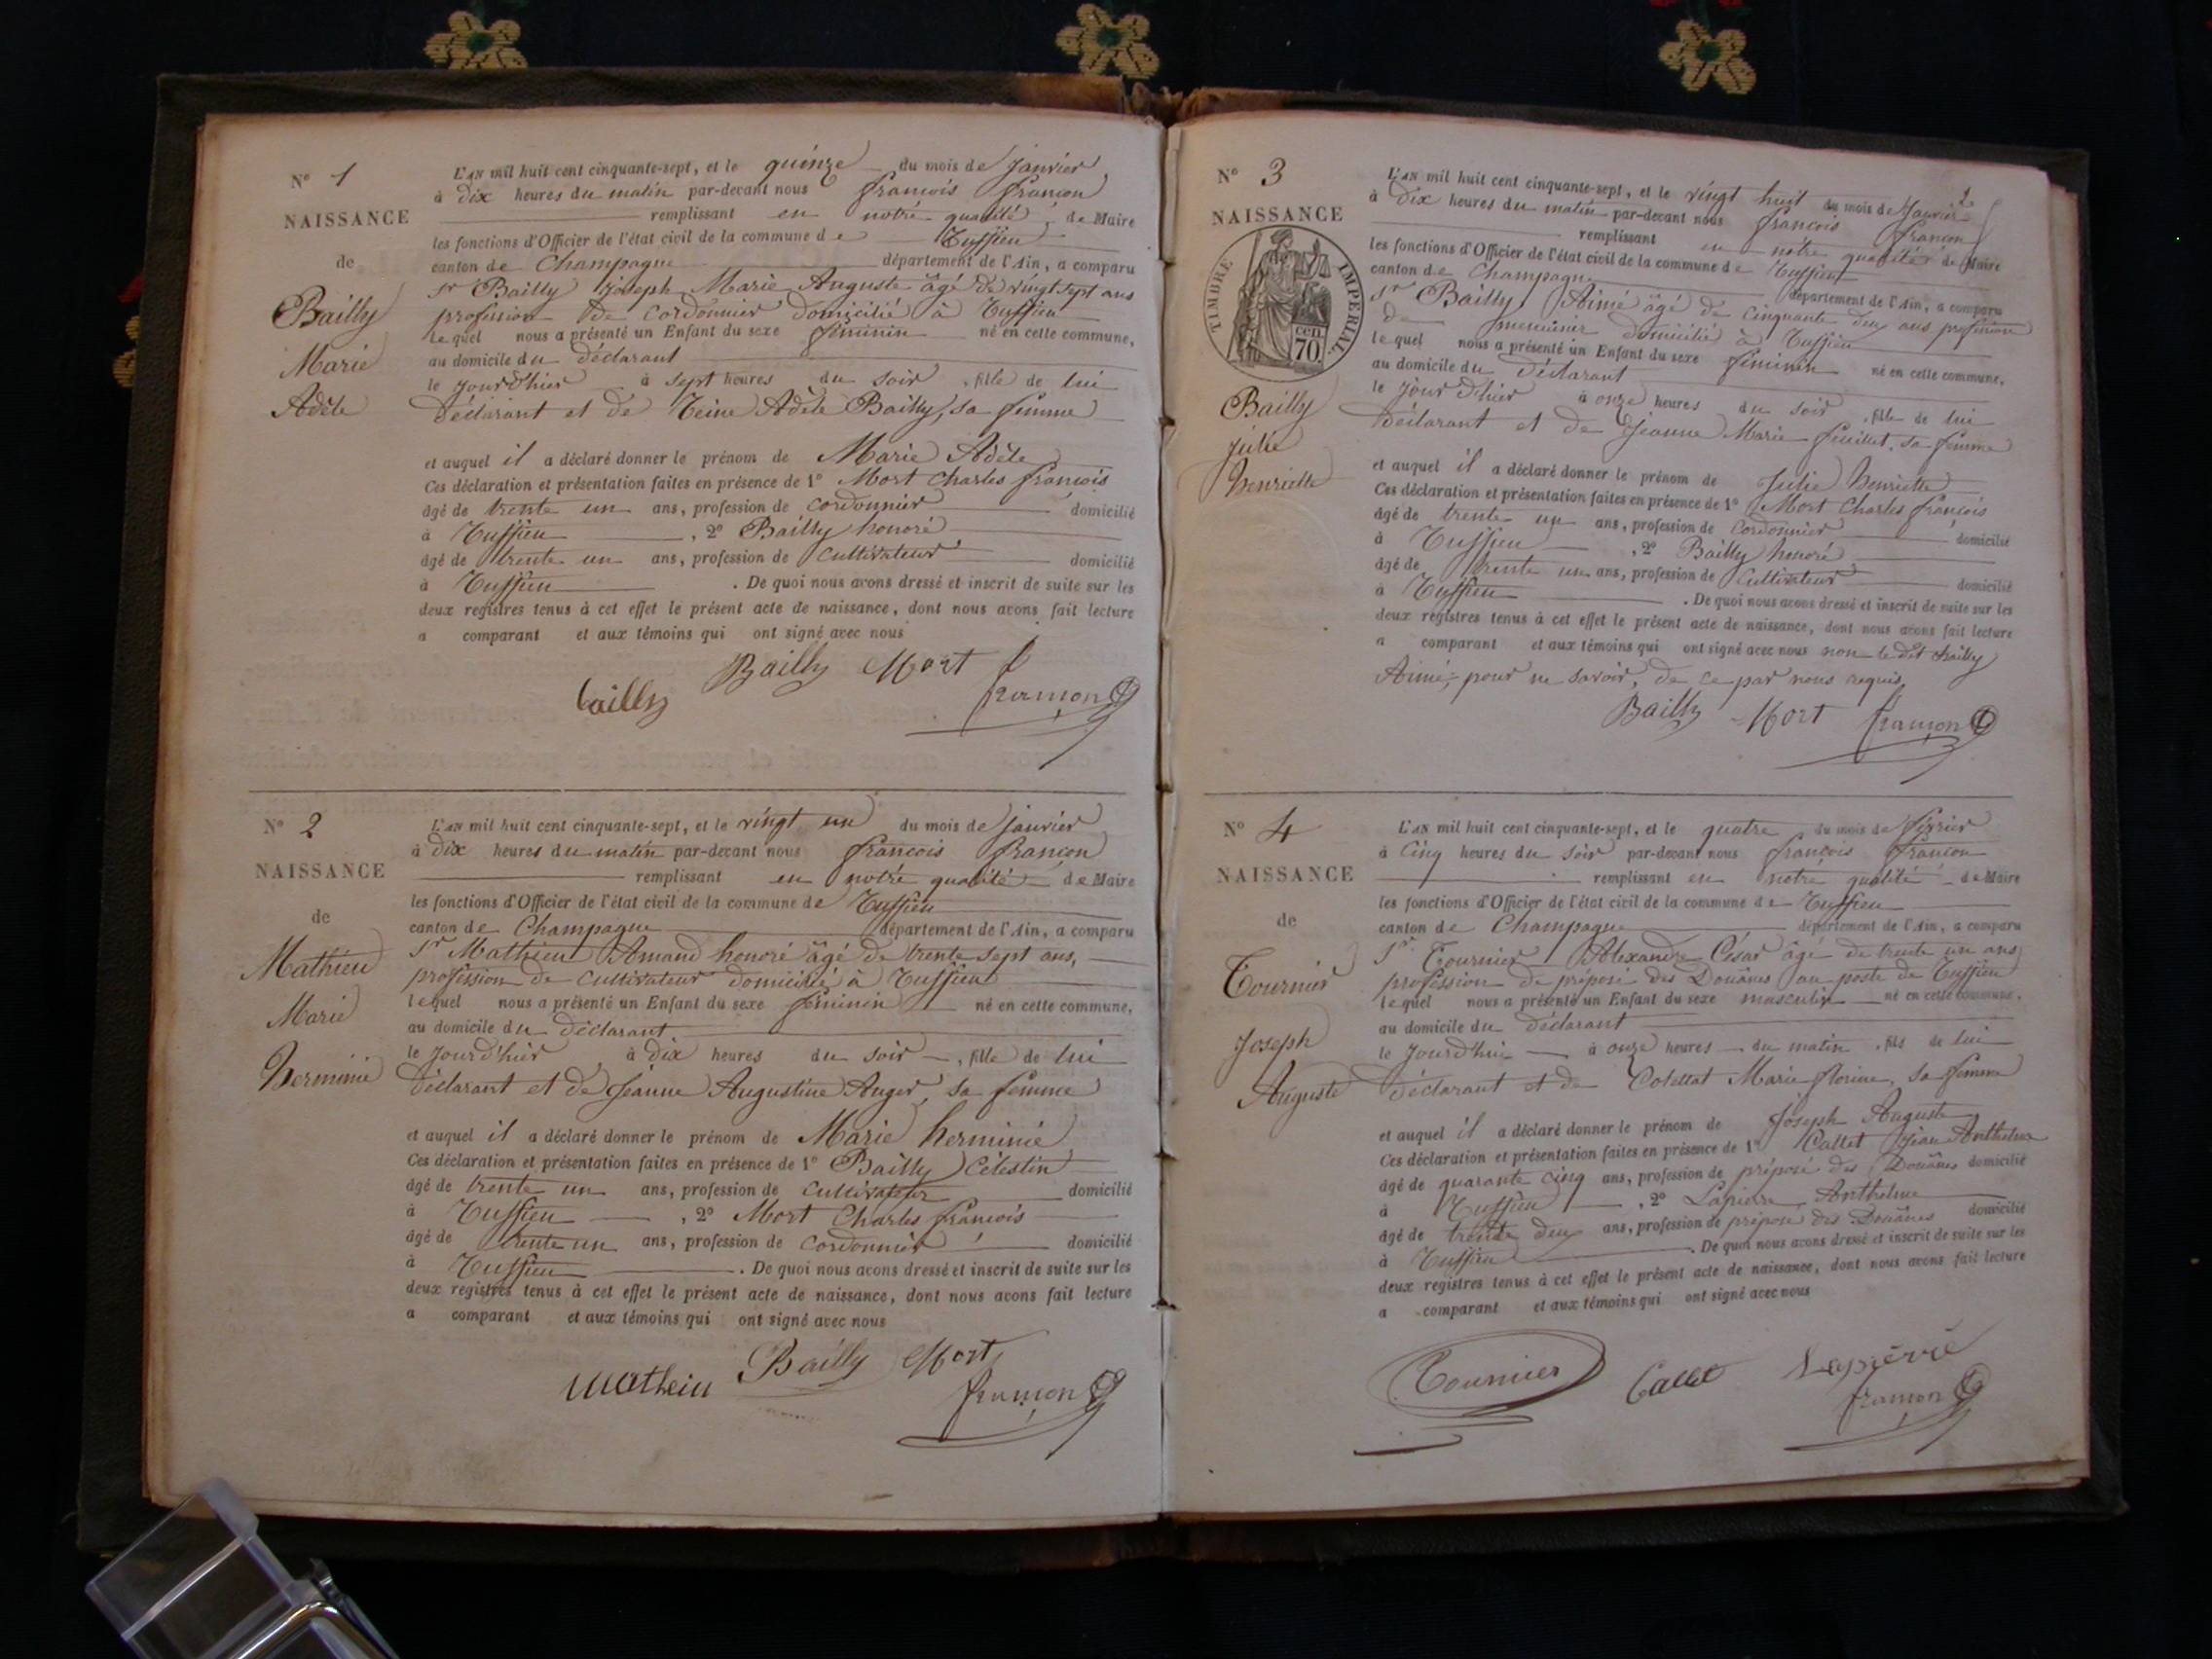 N° 1
NAISSANCE
de
Bailly
Marie
Adèle
L'AN mil huit cent cinquante-sept, et le quinze du mois de Janvier
à Dix heures du matin par-devant nous françois françon
remplissant en notre qualité de Maire
les fonctions d'Officier de l'état civil de la commune de
canton de Champagne département de l'Ain, a comparu
Sr Bailly Joseph Marie Auguste âgé de vingt sept ans
profession de cordonnier domicilié à
lequel nous a présenté un Enfant du sexe féminin né en cette commune,
au domicile du déclarant
le jour d'hier à sept heures du soir, fille de lui
Déclarant et de Adèle Bailly, sa femme
et auquel il a déclaré donner le prénom de Marie Adèle
Ces déclaration et présentation faites en présence de 1° Mort Charles françois
âgé de trente un ans, profession de cordonnier domicilié
à , 2° Bailly honoré
âgé de trente un ans, profession de cultivateur domicilié
à . De quoi nous avons dressé et inscrit de suite sur les
deux registres tenus à cet effet le présent acte de naissance, dont nous avons fait lecture
a comparant et aux témoins qui ont signé avec nous
Bailly Mort f
bailly françon
N° 2
NAISSANCE
de
Mathieu
Marie
herminie
L'AN mil huit cent cinquante-sept, et le vingt un du mois de janvier
à Dix heures du matin par-devant nous françois françon
remplissant en notre qualité de Maire
les fonctions d'Officier de l'état civil de la commune de
canton de Champagne département de l'Ain, a comparu
Sr Mathieu Amand honoré âgé de trente sept ans,
profession de cultivateur domicilié à
lequel nous a présenté un Enfant du sexe féminin né en cette commune,
au domicile du déclarant
le jour d'hier à Dix heures du soir, fille de lui
Déclarant et de Jeanne Augustine Auger, sa femme
et auquel il a déclaré donner le prénom de Marie herminie
Ces déclaration et présentation faites en présence de 1° Bailly Célestin
âgé de trente un ans, profession de cultivateur domicilié
à , 2° Mort Charles françois
âgé de trente un ans, profession de cordonnier domicilié
à . De quoi nous avons dressé et inscrit de suite sur les
deux registres tenus à cet effet le présent acte de naissance, dont nous avons fait lecture
a comparant et aux témoins qui ont signé avec nous
Mathieu Bailly Mort
françon
N° 3
NAISSANCE
TIMBRE IMPÉRIAL
cen.
70.
Bailly
Julie
henriette
2
L'AN mil huit cent cinquante-sept, et le vingt huit du mois de Janvier
à Dix heures du matin par-devant nous françois françon
remplissant en notre qualité de Maire
les fonctions d'Officier de l'état civil de la commune de
canton de Champagne département de l'Ain, a comparu
Sr Bailly Aimé âgé de cinquante deux ans profession
de menuisier domicilié à
lequel nous a présenté un Enfant du sexe féminin né en cette commune,
au domicile du Déclarant
le jour d'hier à onze heures du soir, fille de lui
Déclarant et de Jeanne Marie feuillet, sa femme
et auquel il a déclaré donner le prénom de Julie henriette
Ces déclaration et présentation faites en présence de 1° Mort Charles françois
âgé de trente un ans, profession de cordonnier domicilié
à , 2° Bailly honoré
âgé de trente un ans, profession de cultivateur domicilié
à . De quoi nous avons dressé et inscrit de suite sur les
deux registres tenus à cet effet le présent acte de naissance, dont nous avons fait lecture
a comparant et aux témoins qui ont signé avec nous non le dit Bailly
Aimé, pour ne savoir, de ce par nous requis
Bailly Mort françon
N° 4
NAISSANCE
de
Tournier
Joseph
Auguste
L'AN mil huit cent cinquante-sept, et le quatre du mois de février
à cinq heures du soir par-devant nous françois françon
remplissant en notre qualité de Maire
les fonctions d'Officier de l'état civil de la commune de
canton de Champagne département de l'Ain, a comparu
Sr Tournier Alexandre César âgé de trente un ans
profession de préposé des Douânes au poste de
lequel nous a présenté un Enfant du sexe masculin né en cette commune,
au domicile du Déclarant
le Jourd'hui à onze heures du matin, fils de lui
Déclarant et de Marie florine, sa femme
et auquel il a déclaré donner le prénom de Joseph Auguste
Ces déclaration et présentation faites en présence de 1° Callet Jean Anthelme
âgé de quarante cinq ans, profession de préposé des Douânes domicilié
à , 2° Lapierre Anthelme
âgé de trente deux ans, profession de préposé des Douânes domicilié
à . De quoi nous avons dressé et inscrit de suite sur les
deux registres tenus à cet effet le présent acte de naissance, dont nous avons fait lecture
a comparant et aux témoins qui ont signé avec nous
Tournier Callet Lapierre
françon